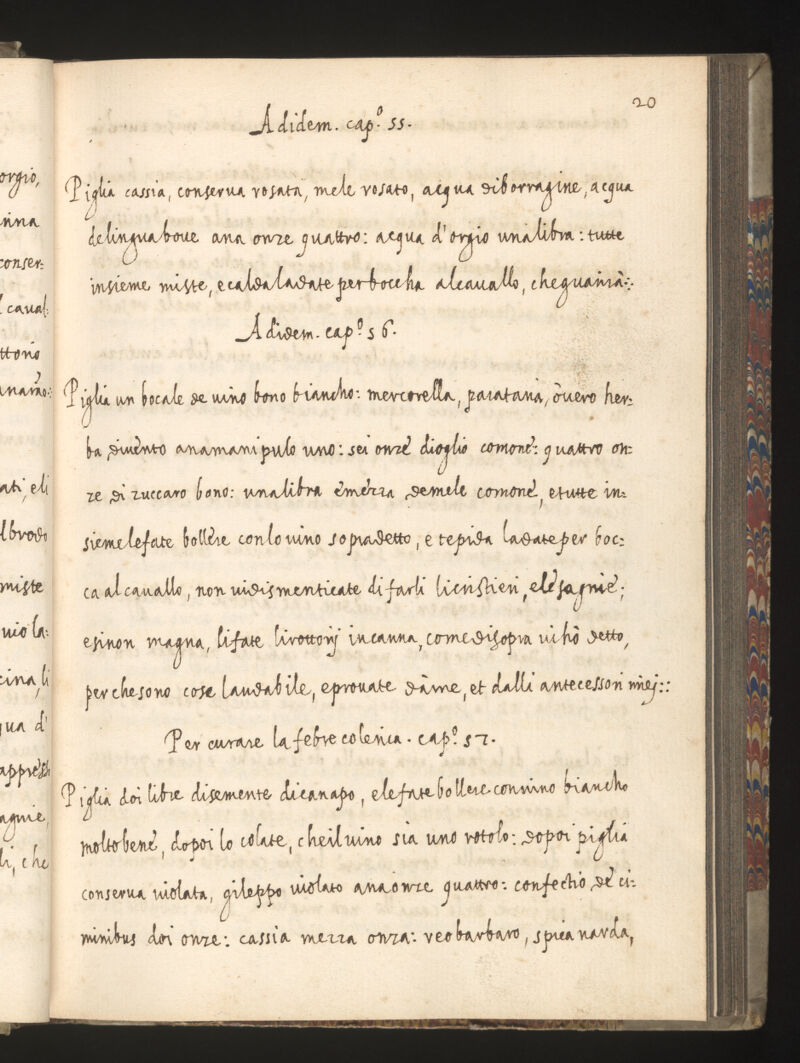 20
Ad idem. cap.º 55.
Piglia cassia, conserua rosata, mele rosato, acqua di borragine, acqua
de lingua boue ana onze quattro: acqua d'orgio una libra: tutte
insieme miste, e calda la date per boccha al cauallo, che guarirà:
Ad idem. cap.º 56.
Piglia un bocale de uino bono biancho: mercorella, paratana, ò uero her=
ba diuento ana manipulo uno: sei onze d'oglio comone: quattro on=
ze di zuccaro bono: una libra è mezza de mele comone, et tutte in=
sieme le fate bollere con lo uino sopradetto, e tepida la date per boc=
ca al cauallo, non ui dismenticate di farli li cristieri, e le sagnie;
e si non magna, li fate li rottorij in canna, come di sopra ui hò detto,
perche sono cose laudabile, e prouate dà me, et dalli antecessori miej::
Per curare la febre colerica. cap.º 57.
Piglia doi libre di semente di canapo, e le fate bollere con uino biancho
molto bene, dopoi lo colate, che il uino sia uno rotolo: dopoi piglia
conserua uiolata, gileppo uiolato ana onze quattro: confectio de ci=
minibus doi onze: cassia mezza onza: reobarbaro, spica narda,
orgio,
conser=
l caual=
ati, e li
l brodo
miste
uio la=
cina, li
qua d'
appress
agnie,
li, che